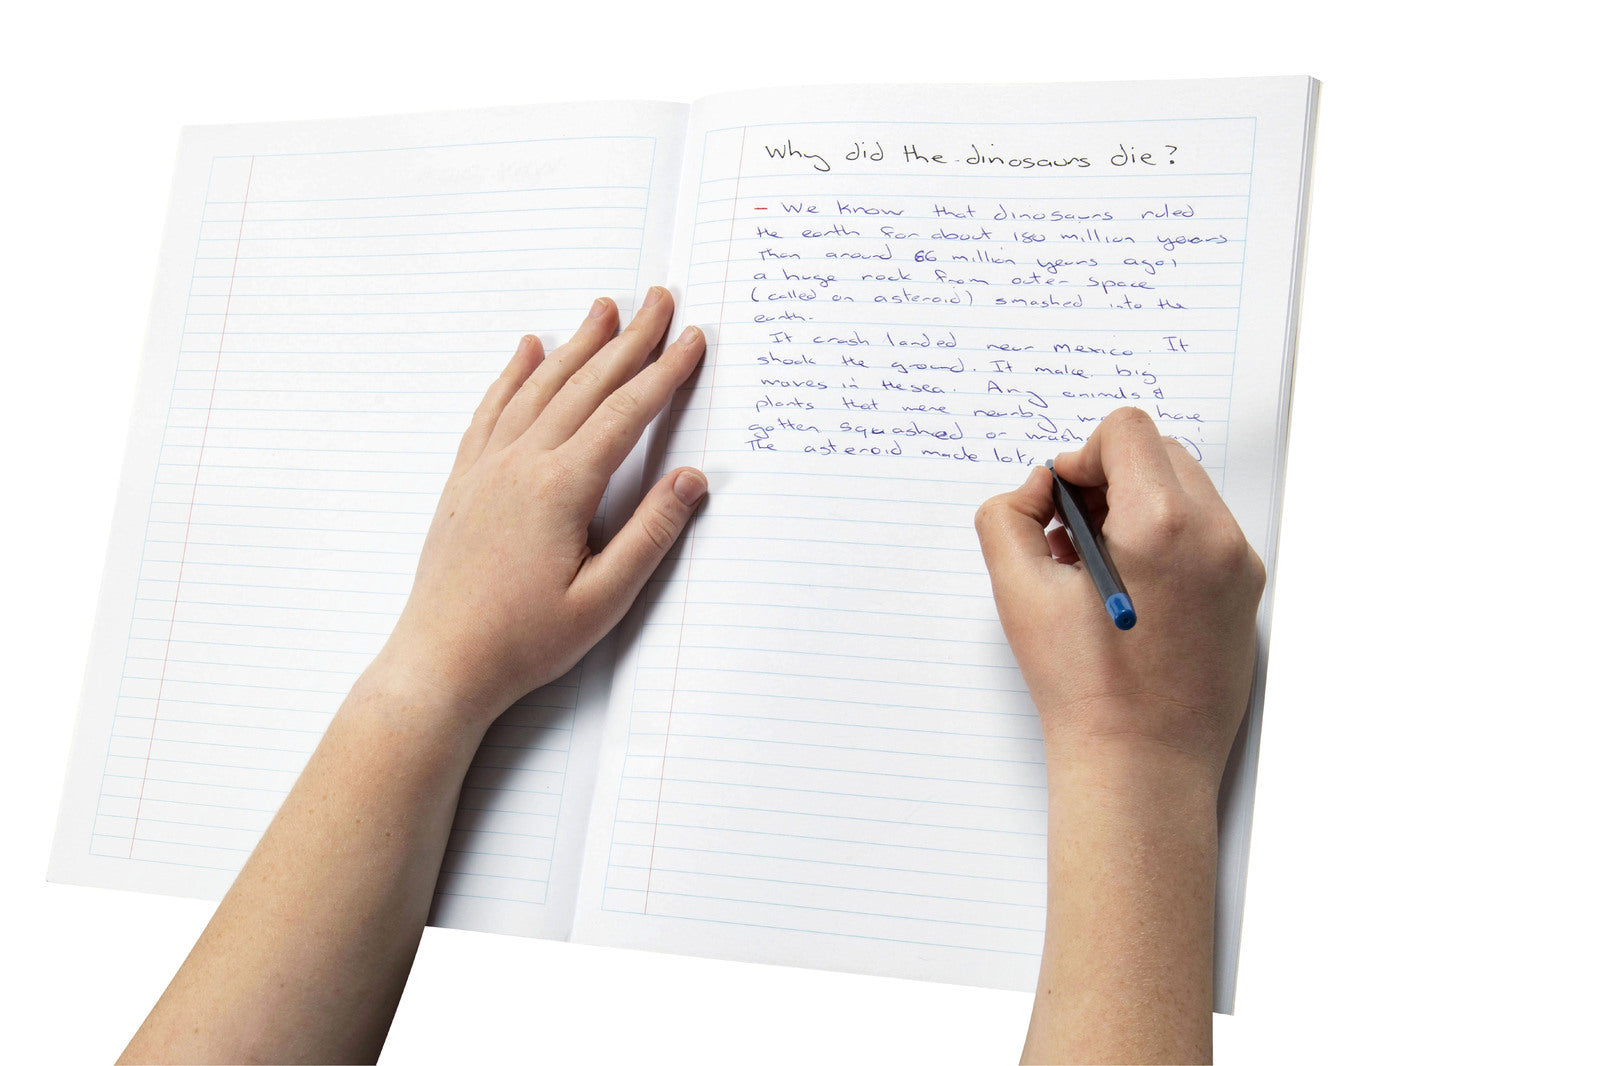 Why did the dinosaurs die?
– We know that dinosaurs ruled
the earth for about 180 million years
Then around 66 million years ago,
a huge rock from outer space
(called an asteroid) smashed into the
earth.
It crash landed near mexico. It
shook the ground. It make big
waves in the sea. Any animals &
plants that were nearby have
gotten squashed or
The asteroid made lots